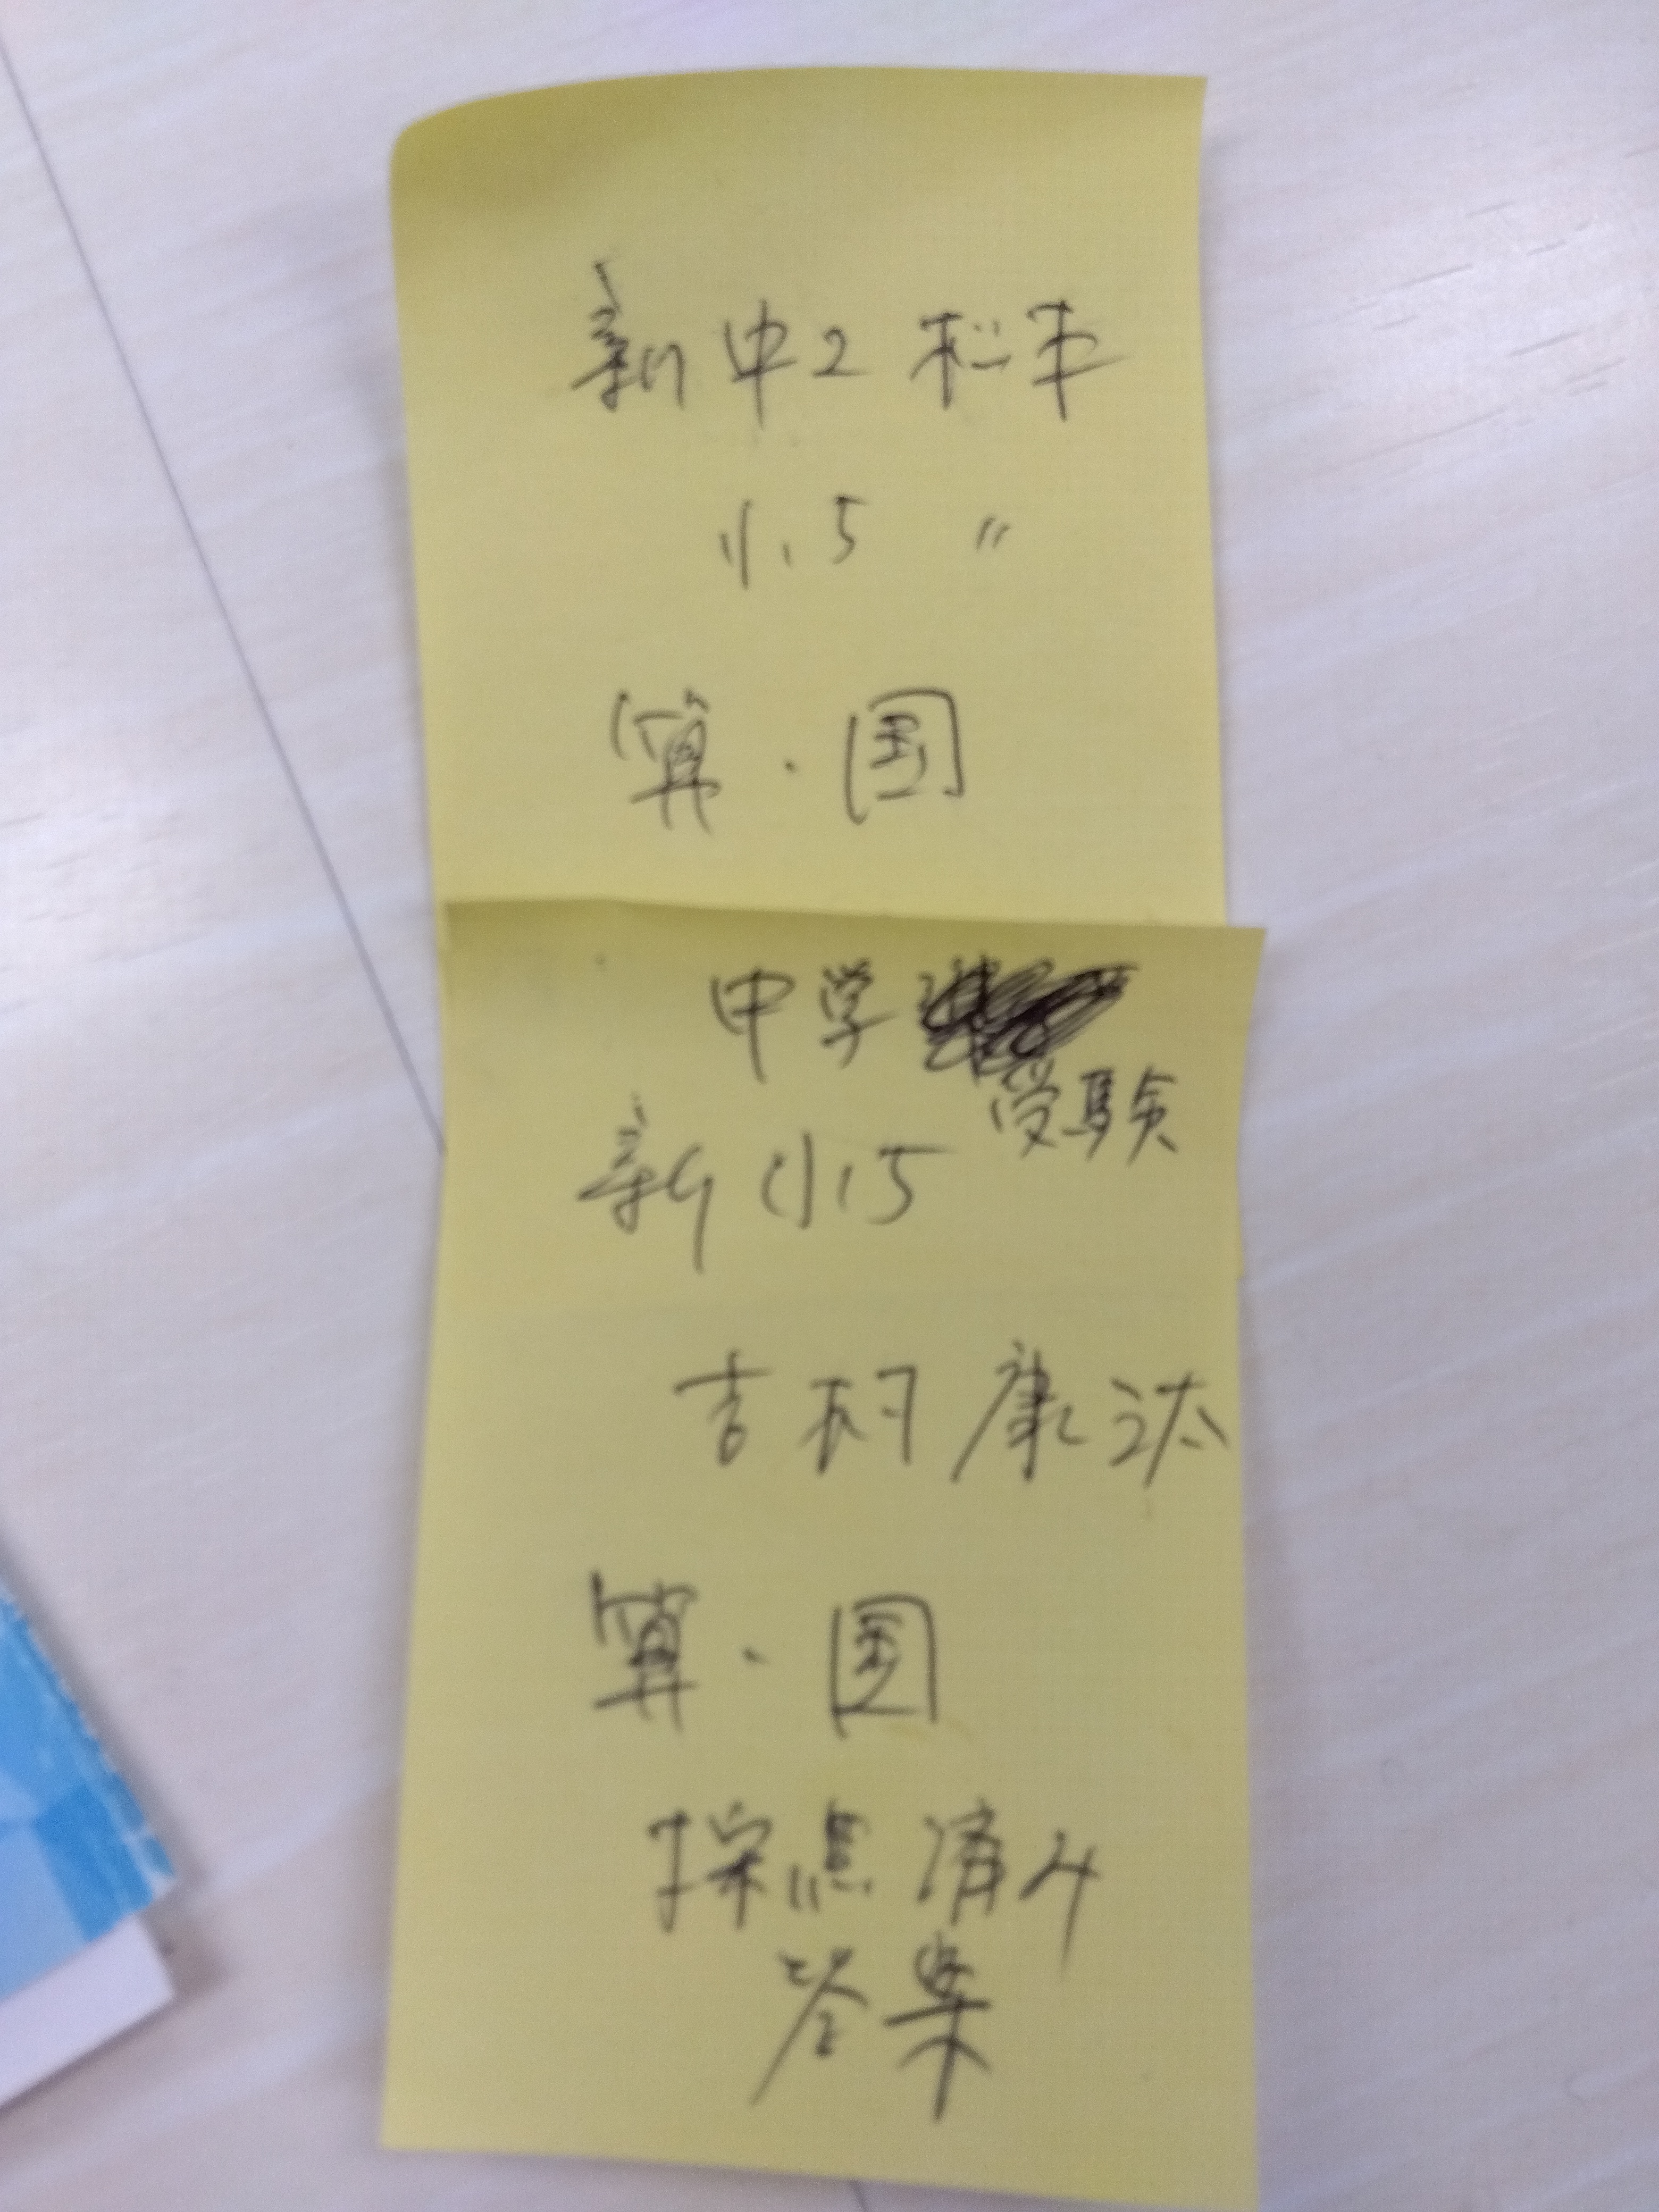 新中2 松本
小5 〃
算・国
中学
受験
新小5
吉村康汰
算・国
採点済み
答案